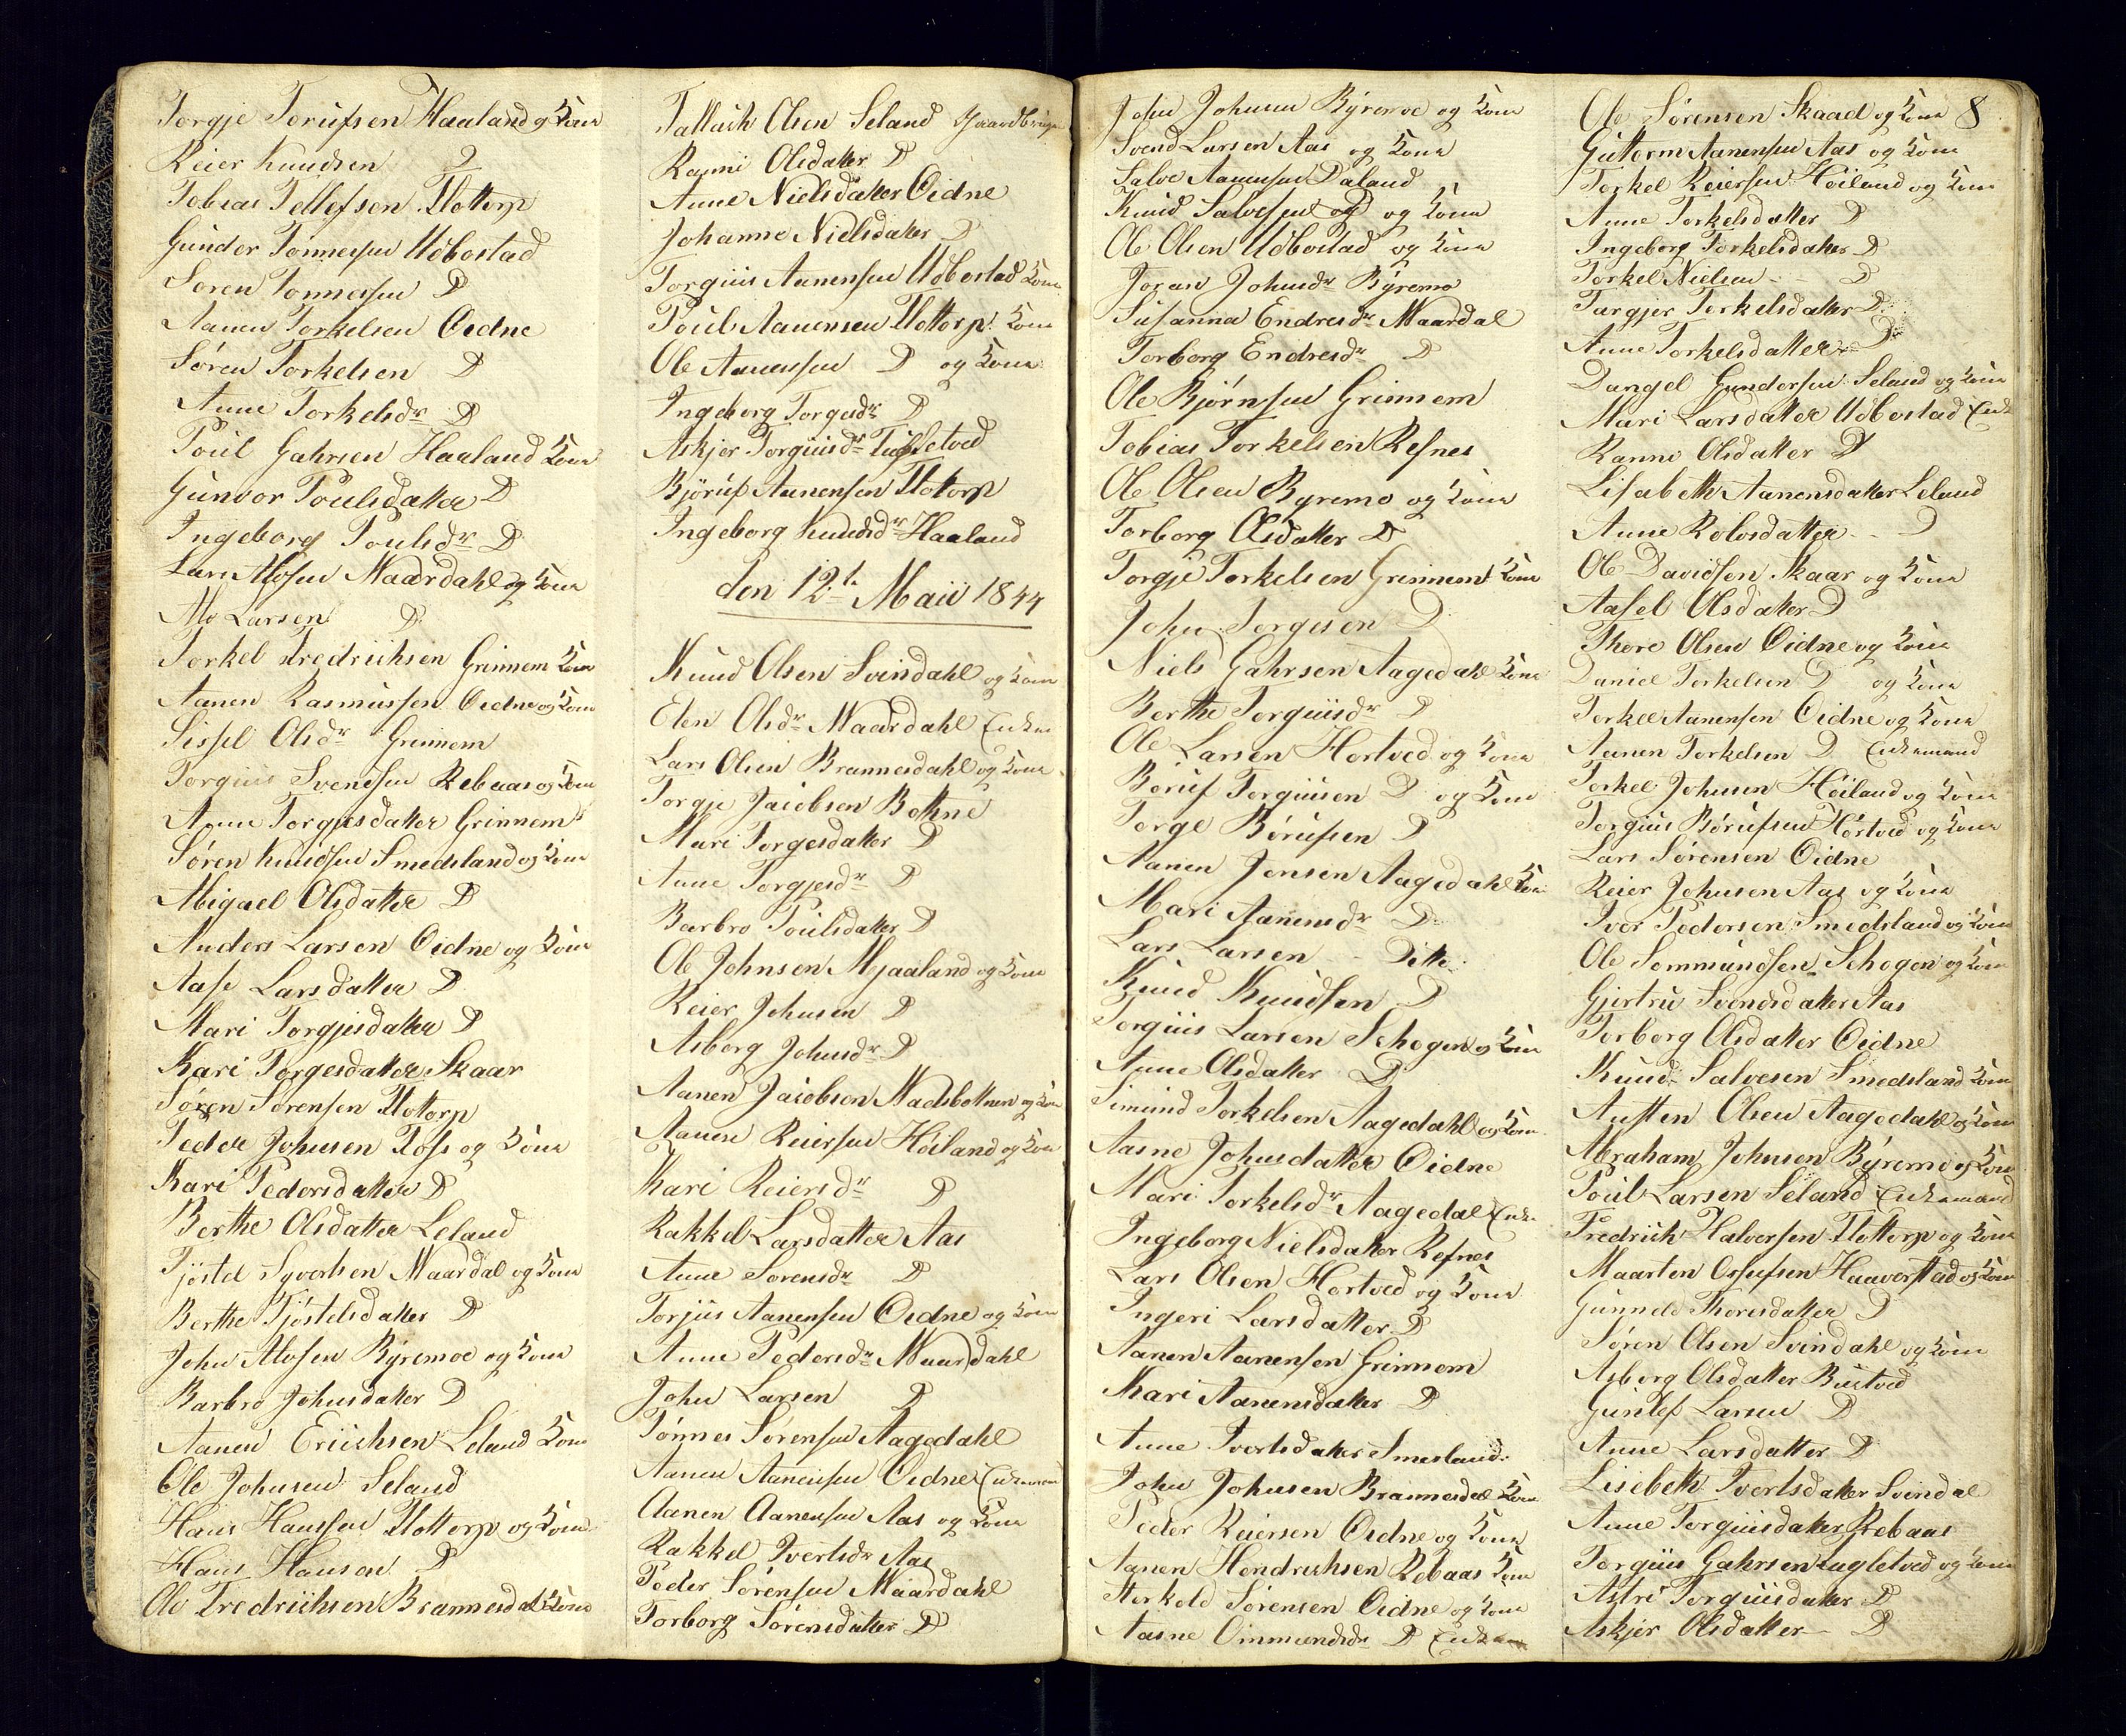 Torgje Torufsen Haaland og Kone
Reier Knudsen D
Tobias Tellefsen Flottorp
Gunder Tonnessen Udbostad
Soren Tonnessen D
Aanen Torkelsen Oidne
Søren Torkelsen D
Anne Torkelsdr D
Poul Gahrsen Haaland Kone
Gunvor Poulsdatter D
Ingeborg Poulsdr D
Lars Atlosen Maardahl og Kone
Atlo Larsen D
Torkel Fredrichsen Grimnem Kone
Aanen Rasmussen Oidne og Kone
Sissel Olsdr Grimnem
Torgius Svendsen Rebaas og Kone
Anne Torgjusdatter Grimnem
Søren Knudsen Smedsland og Kone
Abigael Olsdatter D
Anders Larsen Oidne og Kone
Aase Larsdatter D
Mari Torgjesdatter D
Kari Torgesdatter Skaar
Søren Sørensen Flottorp
Peder Johnsen Foss og Kone
Kari Pedersdatter D
Berthe Olsdatter Leland
Tjøstel Syvertsen Maardal og Kone
Berthe Tjøstelsdatter D
John Atlosen Byremoe og Kone
Barbro Johnsdatter D
Aanen Erichsen Leland Kone
Ole Johnsen Seland
Hans Hansen Flottorp og Kone
Hans Hansen D
Ole Fredrichsen Brannesdal Kone
Tallach Olsen Seland Gaardbruger
Ranni Olsdatter D
Anne Nielsdatter Oidne
Johanne Nielsdatter D
Torgius Aanensen Udbostad Kone
Poul Aanensen Flottorp Kone
Ole Aanensen D og Kone
Ingeborg Torgesdr D
Askjer Torgiusdr Tugletved
Bjøruf Aanensen Flottorp
Ingeborg Knudsdr Haaland
den 12t Maii 1844
Knud Olsen Svindahl og Kone
Elen Olsdr Maardahl Enke
Lars Olsen Brannesdahl og Kone
Torgje Jacobsen Botne
Mari Torgesdatter D
Anne Torgjesdr D
Barbro Poulsdatter D
Ole Johnsen Mjaaland og Kone
Reier Johnsen D
Asborg Johnsdr D
Aanen Jacobsen Madsbotnen og Kone
Aanen Reiersen Høiland og Kone
Kari Reiersdr D
Rakkel Larsdatter Aas
Anne Sorensdr D
Torjus Aanensen Oidne og Kone
Anne Pedersdr Maardahl
John Larsen D
Tønnes Sørensen Aagedahl
Aanen Aanensen Oidne Enkemand
Aanen Aanensen Aas og Kone
Rakkel Ivertsdr Aas
Peder Sørensen Maardahl
Torborg Sørensdatter D
John Johnsen Byremoe og Kone
Svend Larsen Aas og Kone
Salve Aanensen Daland
Knud Salvesen D og Kone
Ole Olsen Udbostad og Kone
Joran Johnsdr Byremo
Susanna Endresdr Maardal
Torborg Endresdr D
Ole Bjørnsen Grimnem
Tobias Torkelsen Refnes
Ole Olsen Byremo og Kone
Torborg Olsdatter D
Torgje Torkelsen Grimnem Kone
John Torgesen D
Niels Gahrsen Aagedahl Kone
Berthe Torguusdr D
Ole Larsen Hortved og Kone
Boruf Torguusen D og Kone
Torge Børufsen D
Aanen Jensen Aagedahl Kone
Mari Aanensdr D
Lars Larsen Ditto
Knud Knudsen D
Torguus Larsen Schogen og Kone
Anne Olsdatter D
Simund Torkelsen Aagedahl og Kone
Aasne Johnsdatter Oidne
Mari Torkelsdr Aagedal Enke
Ingeborg Nielsdatter Refnes
Lars Olsen Hortved og Kone
Ingeri Larsdatter D
Aanen Aanensen Grimnem
Mari Aanensdatter D
Anne Ivertsdatter Smesland
John Johnsen Brannesdal Kone
Peder Reiersen Oidne og Kone
Aanen Hendrichsen Rebaas Kone
Størkold Sørensen Oidne og Kone
Aasne Ommundsdr D Enke
Ole Sørensen Skaael og Kone 8
Guttorm Aanensen Aas og Kone
Torkel Reiersen Høiland og Kone
Anne Torkelsdatter D
Ingeborg Torkelsdatter D
Torkel Nielsen D
Turgjer Torkelsdatter D
Anne Torkelsdatter D
Dangel Gundersen Seland og Kone
Mari Larsdatter Udbostad Enke
Ranne Olsdatter D
Lisabeth Aanensdatter Leland
Anne Rolosdatter D
Ole Davidsen Skaar og Kone
Aasel Olsdatter D
Thore Olsen Oidne og Kone
Daniel Torkelsen D og Kone
Torkel Aanensen Oidne og Kone
Aanen Torkelsen D Enkemand
Torkel Johnsen Høiland og Kone
Torgius Børufsen Hørtved og Kone
Lars Sørensen Oidne
Reier Johnsen Aas og Kone
Iver Pedersen Smedsland og Kone
Ole Sommundsen Schogen og Kone
Gjertru Svendsdatter Aas
Torborg Olsdatter Oidne
Knud Salvesen Smedsland Kone
Austen Olsen Aagedahl og Kone
Abraham Johnsen Byremo og Kone
Poul Larsen Seland Enkemand
Fredrich Halversen Flottorp og Kone
Maarten Osufsen Haaverstad og Kone
Gunneld Thoresdatter D
Søren Olsen Svindahl og Kone
Asborg Olsdatter Bustved
Gunlef Larsen D
Anne Larsdatter D
Lisebeth Ivertsdatter Svindal
Anne Torguusdatter Rebaas
Torguus Gahrsen Lugletved og Kone
Astri Torguusdatter D
Askjer Olsdatter D